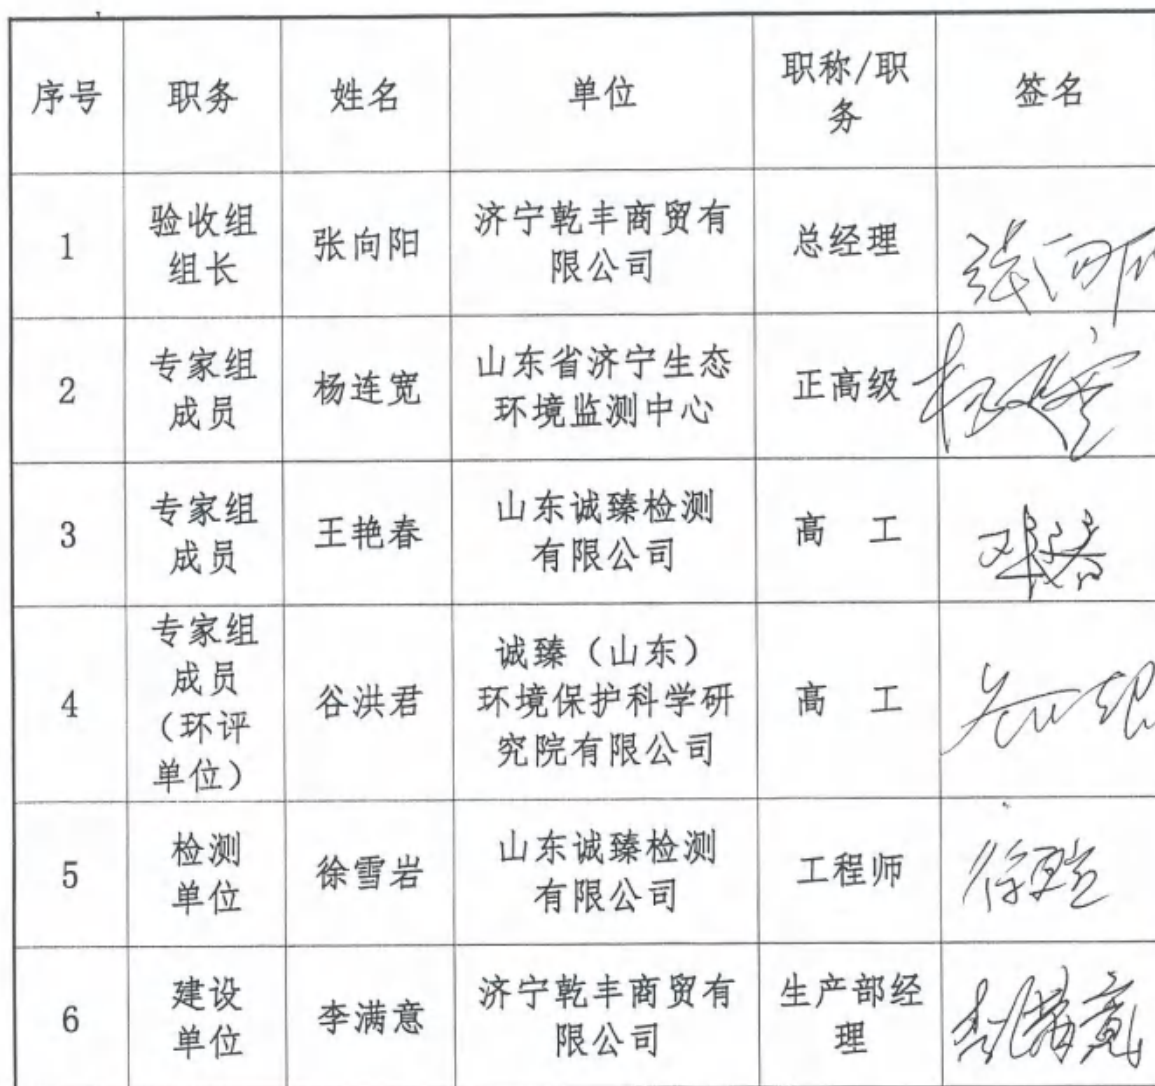 序号 职务 姓名 单位 职称/职
务 签名
1 验收组
组长 张向阳 济宁乾丰商贸有
限公司 总经理
2 专家组
成员 杨连宽 山东省济宁生态
环境监测中心 正高级
3 专家组
成员 王艳春 山东诚臻检测
有限公司 高 工
4 专家组
成员
（环评
单位） 谷洪君 诚臻（山东）
环境保护科学研
究院有限公司 高 工
5 检测
单位 徐雪岩 山东诚臻检测
有限公司 工程师
6 建设
单位 李满意 济宁乾丰商贸有
限公司 生产部经
理 李满意